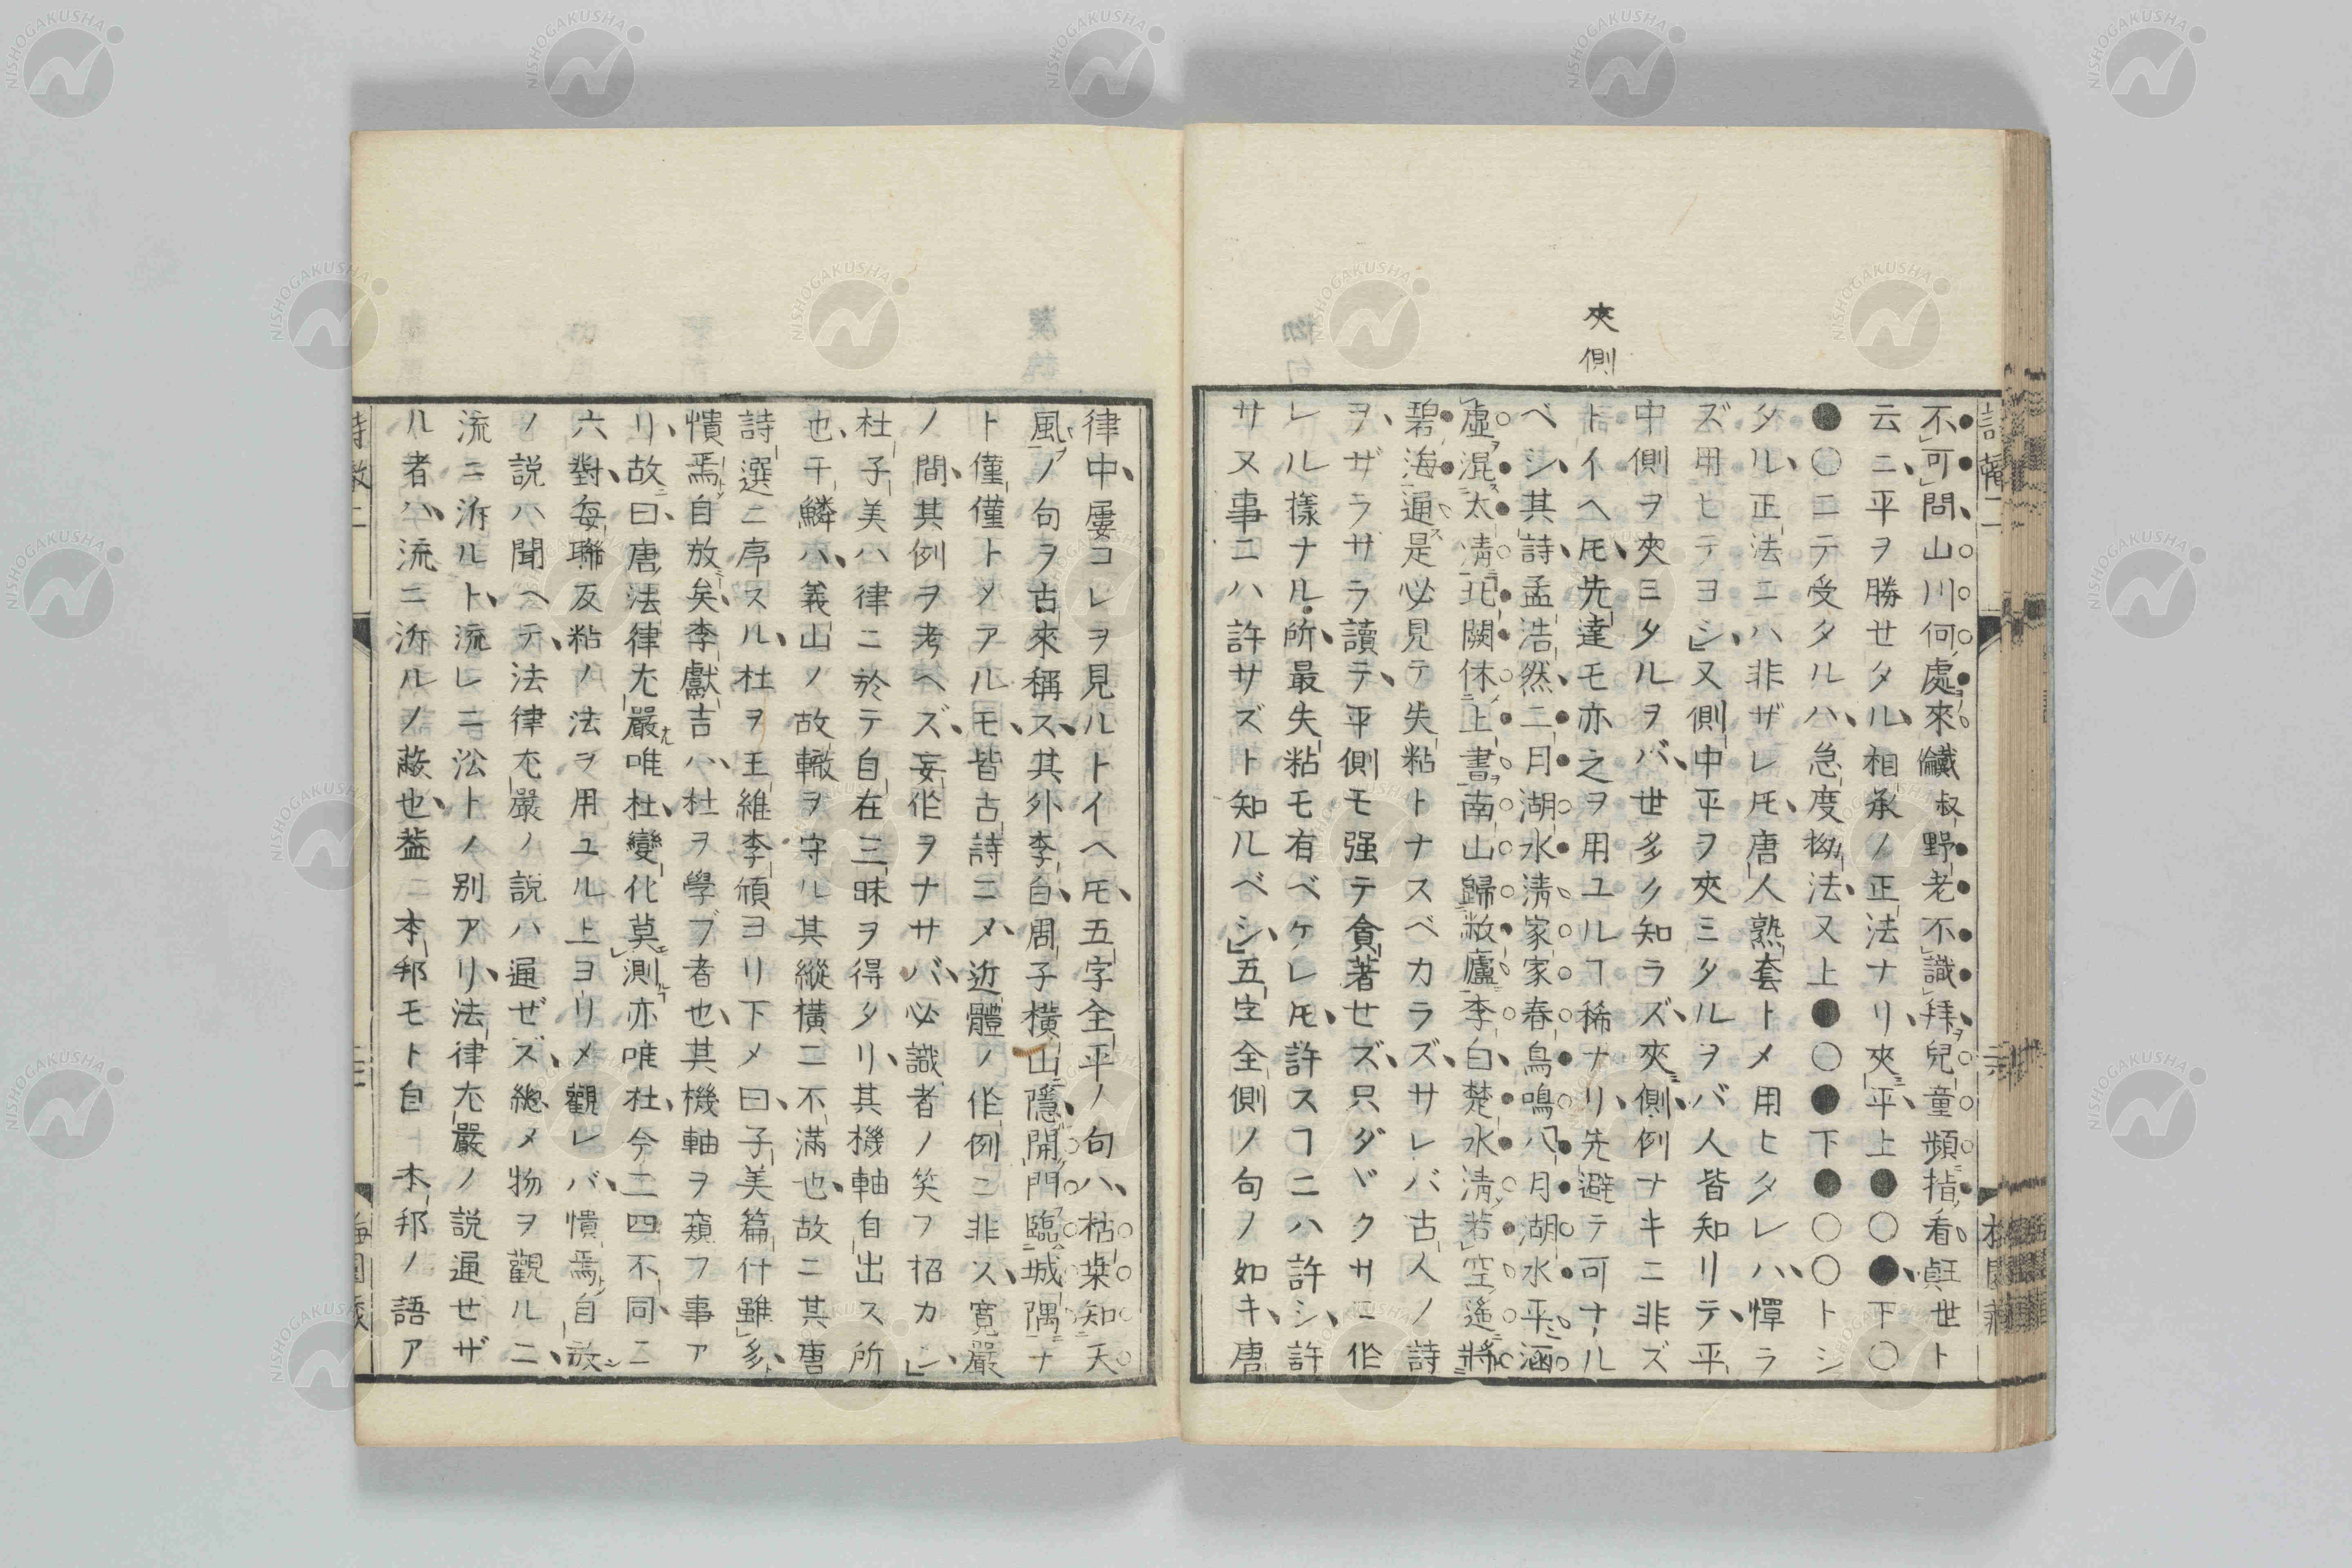 夾側
不可問山川何處來鐵叔野老不識拜兒童頻指看甀世ト
云ニ平ヲ勝セタル相承ノ正法ナリ夾平上●○●下○
●○ニテ受タルハ急度拗法又上●○●下●○○トシ
タル正法ニハ非ザレ𪜈唐人熟套トメ用ヒタレハ憚ラ
ズ用ヒテヨシ又側中平ヲ夾ミタルヲバ人皆知リテ平
中側ヲ夾ミタルヲバ世多ク知ラズ夾側例ナキニ非ズ
トイヘ𪜈先達モ亦之ヲ用ユルヿ稀ナリ先避テ可ナル
ベシ其詩孟浩然二月湖水淸家家春鳥鳴八月湖水平涵
虛混太淸北闕休上書南山歸敝廬李白楚水淸若空遙將
碧海通是必見テ失粘トナスベカラズサレバ古人ノ詩
ヲザラサラ讀テ平側モ强テ貪著セズ只ダヾクサニ作
レル樣ナル所最失粘モ有ベケレ𪜈許スヿニハ許シ許
サヌ事ニハ許サズト知ルベシ五字全側ノ句ノ如キ唐
律中屢コレヲ見ルトイヘ𪜈五字全平ノ句ハ枯桑知天
風ノ句ヲ古來稱ス其外李白周子橫山隱開門臨城隅ナ
ト僅僅トメアルモ皆古詩ニメ近體ノ作例ニ非ス寬嚴
ノ間其例ヲ考ヘズ妄作ヲナサバ必識者ノ笑ヲ招カン
杜子美ハ律ニ於テ自在三昧ヲ得タリ其機軸自出ス所
也于鱗ハ義山ノ故轍ヲ守ル其縱橫ニ不滿也故ニ其唐
詩選ニ序スル杜ヲ王維李頎ヨリ下メ曰子美篇什雖多
憒焉自放矣李獻吉ハ杜ヲ學ブ者也其機軸ヲ窺フ事ア
リ故曰唐法律尤嚴唯杜變化莫測亦唯杜今二四不同二
六對每聯反粘ノ法ヲ用ユル上ヨリメ觀レバ憒焉自放
ノ說ハ聞ヘテ法律尤嚴ノ說ハ通ゼズ總メ物ヲ觀ルニ
流ニ泝ルト流レニ沿トノ別アリ法律尤嚴ノ說通セザ
ル者ハ流ニ泝ルノ蔽也蓋ニ本邦モト自 本邦ノ語ア